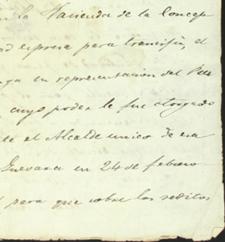 la Hacienda de la Concep
espresa para transijir, el
en representacion del
cuyo poder le fue otorgado
el Alcalde unico de esa
Guevara en 24 de febrero
para que cobre los reditos